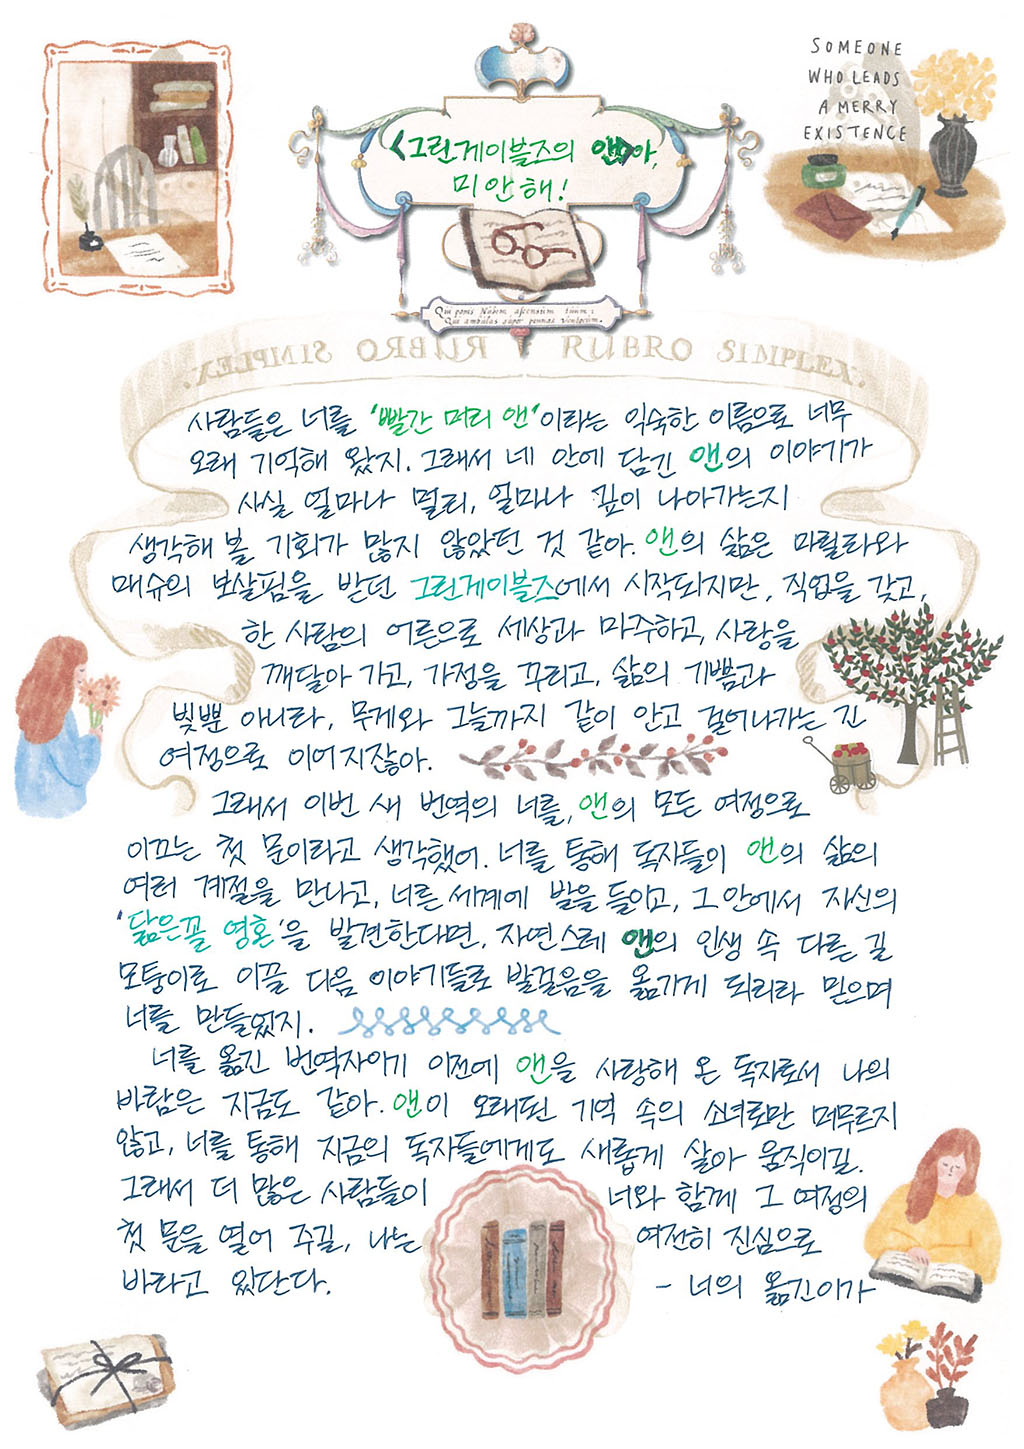 SOMEONE
WHO LEADS
A MERRY
EXISTENCE
<그린게이블즈의 앤>아,
미안해!
RUBRO SIMPLEX
사람들은 너를 '빨간 머리 앤'이라는 익숙한 이름으로 너무
오래 기억해 왔지. 그래서 네 안에 담긴 앤의 이야기가
사실 얼마나 멀리, 얼마나 깊이 나아가는지
생각해 볼 기회가 많지 않았던 것 같아. 앤의 삶은 마릴라와
매슈의 보살핌을 받던 그린게이블즈에서 시작되지만, 직업을 갖고,
한 사람의 어른으로 세상과 마주하고, 사랑을
깨달아 가고, 가정을 꾸리고, 삶의 기쁨과
빛뿐 아니라, 무게와 그늘까지 같이 안고 걸어나가는 긴
여정으로 이어지잖아.
그래서 이번 새 번역의 너를, 앤의 모든 여정으로
이끄는 첫 문이라고 생각했어. 너를 통해 독자들이 앤의 삶의
여러 계절을 만나고, 너른 세계에 발을 들이고, 그 안에서 자신의
'닮은꼴 영혼'을 발견한다면, 자연스레 앤의 인생 속 다른 길
모퉁이로 이끌 다음 이야기들로 발걸음을 옮기게 되리라 믿으며
너를 만들었지.
너를 옮긴 번역자이기 이전에 앤을 사랑해 온 독자로서 나의
바람은 지금도 같아. 앤이 오래된 기억 속의 소녀로만 머무르지
않고, 너를 통해 지금의 독자들에게도 새롭게 살아 움직이길.
그래서 더 많은 사람들이 너와 함께 그 여정의
첫 문을 열어 주길, 나는 여전히 진심으로
바라고 있단다.
- 너의 옮긴이가